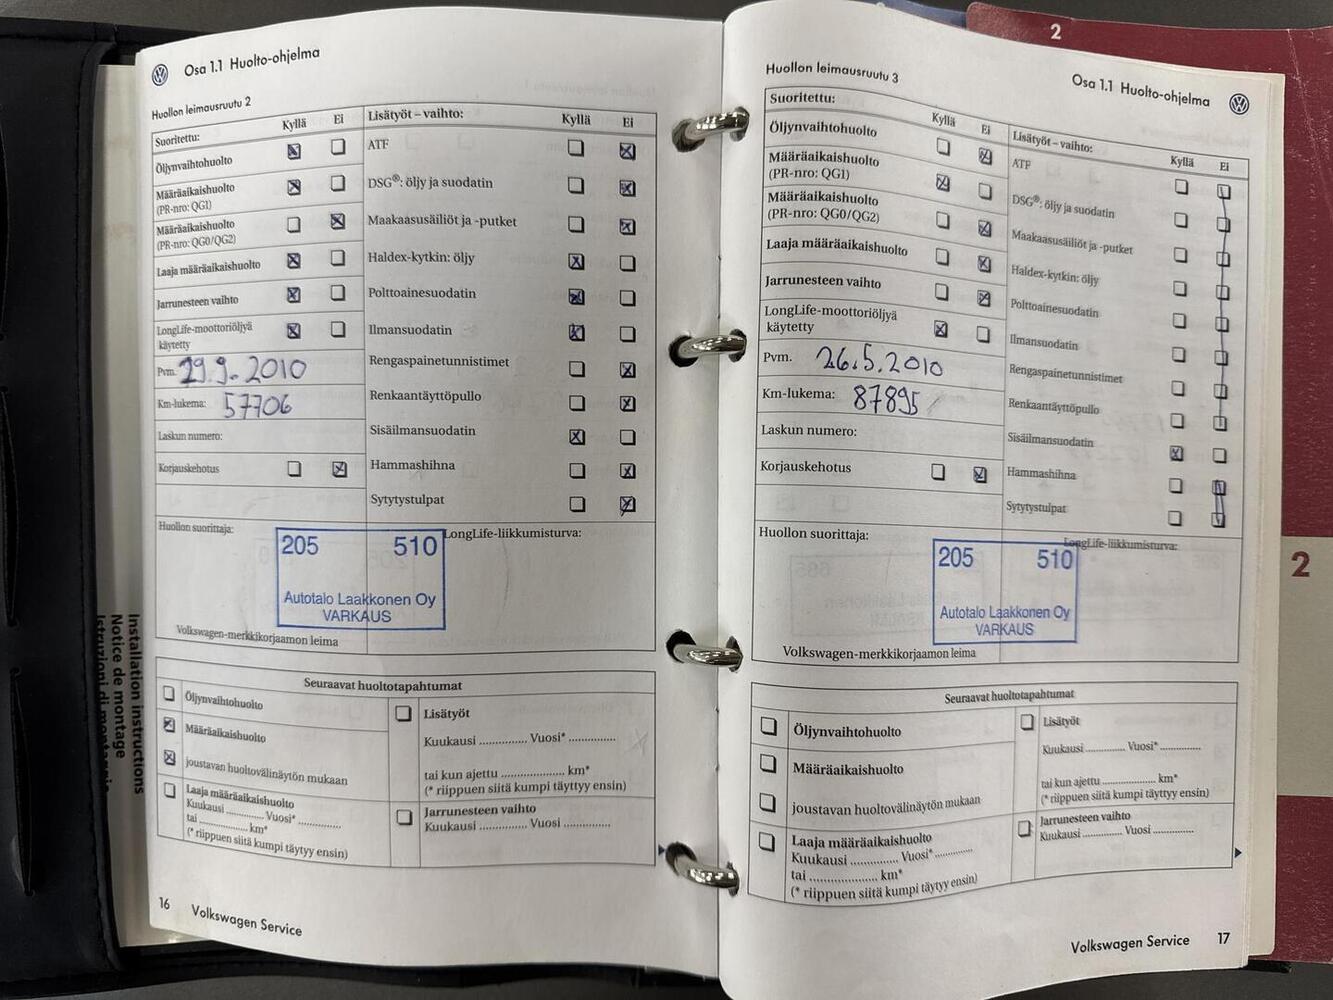 Osa 1.1 Huolto-ohjelma
Huollon leimausruutu 2
Suoritettu:
Kyllä
Ei
Öljynvaihtohuolto
Määräaikaishuolto
(PR-nro: QG1)
Määräaikaishuolto
(PR-nro: QG0/QG2)
Laaja määräaikaishuolto
Jarrunesteen vaihto
LongLife-moottoriöljyä
käytetty
Pvm. 29.9.2010
Km-lukema: 57706
Laskun numero:
Korjauskehotus
Lisätyöt – vaihto:
Kyllä
Ei
ATF
DSG®: öljy ja suodatin
Maakaasusäiliöt ja -putket
Haldex-kytkin: öljy
Polttoainesuodatin
Ilmansuodatin
Rengaspainetunnistimet
Renkaantäyttöpullo
Sisäilmansuodatin
Hammashihna
Sytytystulpat
Huollon suorittaja:
LongLife-liikkumisturva:
205 510
Autotalo Laakkonen Oy
VARKAUS
Volkswagen-merkkikorjaamon leima
Seuraavat huoltotapahtumat
Öljynvaihtohuolto
Määräaikaishuolto
joustavan huoltovälinäytön mukaan
Laaja määräaikaishuolto
Kuukausi .............. Vuosi* ..............
tai .................. km*
(* riippuen siitä kumpi täytyy ensin)
Lisätyöt
Kuukausi .............. Vuosi* ..............
tai kun ajettu .................... km*
(* riippuen siitä kumpi täyttyy ensin)
Jarrunesteen vaihto
Kuukausi .............. Vuosi ..............
16 Volkswagen Service
Osa 1.1 Huolto-ohjelma
Huollon leimausruutu 3
Suoritettu:
Kyllä
Ei
Öljynvaihtohuolto
Määräaikaishuolto
(PR-nro: QG1)
Määräaikaishuolto
(PR-nro: QG0/QG2)
Laaja määräaikaishuolto
Jarrunesteen vaihto
LongLife-moottoriöljyä
käytetty
Pvm. 26.5.2010
Km-lukema: 87895
Laskun numero:
Korjauskehotus
Lisätyöt – vaihto:
Kyllä
Ei
ATF
DSG®: öljy ja suodatin
Maakaasusäiliöt ja -putket
Haldex-kytkin: öljy
Polttoainesuodatin
Ilmansuodatin
Rengaspainetunnistimet
Renkaantäyttöpullo
Sisäilmansuodatin
Hammashihna
Sytytystulpat
Huollon suorittaja:
LongLife-liikkumisturva:
205 510
Autotalo Laakkonen Oy
VARKAUS
Volkswagen-merkkikorjaamon leima
Seuraavat huoltotapahtumat
Öljynvaihtohuolto
Määräaikaishuolto
joustavan huoltovälinäytön mukaan
Laaja määräaikaishuolto
Kuukausi .............. Vuosi* ..............
tai .................... km*
(* riippuen siitä kumpi täytyy ensin)
Lisätyöt
Kuukausi .............. Vuosi* ..............
tai kun ajettu .................... km*
(* riippuen siitä kumpi täyttyy ensin)
Jarrunesteen vaihto
Kuukausi .............. Vuosi ..............
Volkswagen Service 17
2
2
Installation instructions
Notice de montage